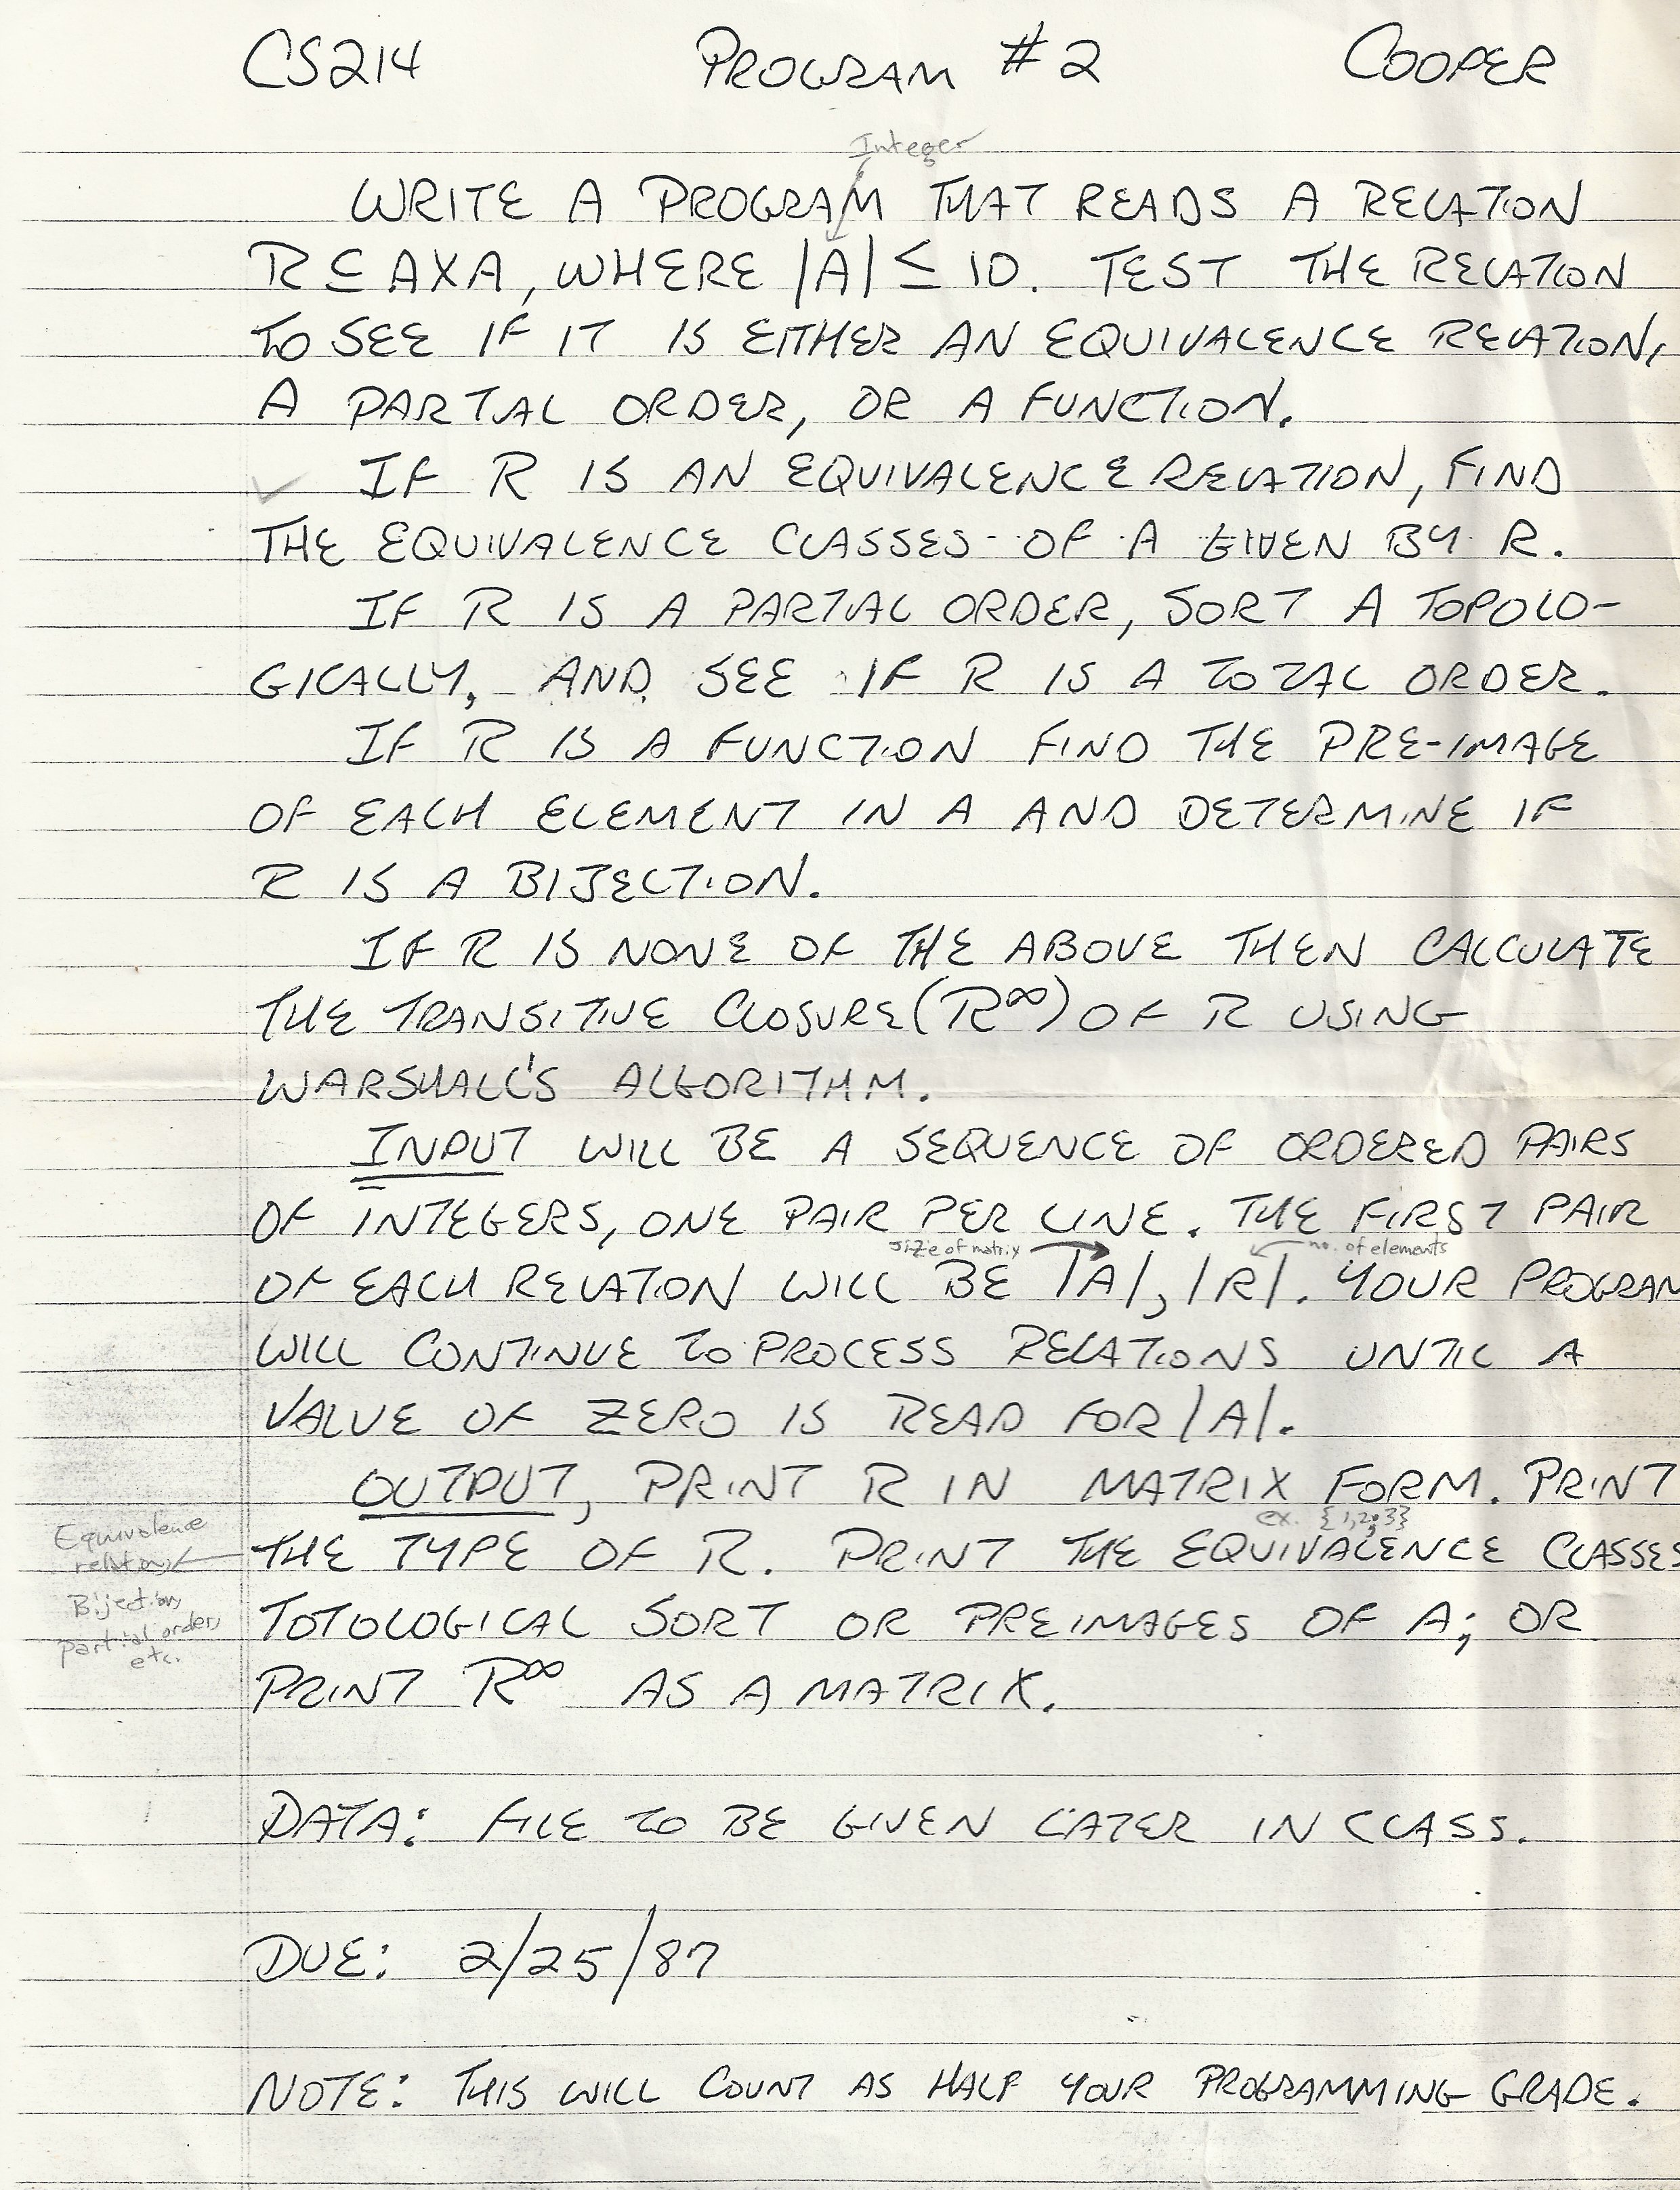 CS214 PROGRAM #2 COOPER
Integer
WRITE A PROGRAM THAT READS A RELATION
R ⊆ AXA, WHERE |A| ≤ 10. TEST THE RELATION
TO SEE IF IT IS EITHER AN EQUIVALENCE RELATION,
A PARTIAL ORDER, OR A FUNCTION.
IF R IS AN EQUIVALENCE RELATION, FIND
THE EQUIVALENCE CLASSES OF A GIVEN BY R.
IF R IS A PARTIAL ORDER, SORT A TOPOLO-
GICALLY, AND SEE IF R IS A TOTAL ORDER.
IF R IS A FUNCTION FIND THE PRE-IMAGE
OF EACH ELEMENT IN A AND DETERMINE IF
R IS A BIJECTION.
IF R IS NONE OF THE ABOVE THEN CALCULATE
THE TRANSITIVE CLOSURE (R∞) OF R USING
WARSHALL'S ALGORITHM.
INPUT WILL BE A SEQUENCE OF ORDERED PAIRS
OF INTEGERS, ONE PAIR PER LINE. THE FIRST PAIR
size of matrix no. of elements
OF EACH RELATION WILL BE |A|, |R|. YOUR PROGRAM
WILL CONTINUE TO PROCESS RELATIONS UNTIL A
VALUE OF ZERO IS READ FOR |A|.
OUTPUT, PRINT R IN MATRIX FORM. PRINT
ex. {1,2,3}
THE TYPE OF R. PRINT THE EQUIVALENCE CLASSES
TOTOLOGICAL SORT OR PREIMAGES OF A; OR
PRINT R∞ AS A MATRIX.
Equivalence
relation,
Bijection,
partial order,
etc.
DATA: FILE TO BE GIVEN LATER IN CLASS.
DUE: 2/25/87
NOTE: THIS WILL COUNT AS HALF YOUR PROGRAMMING GRADE.